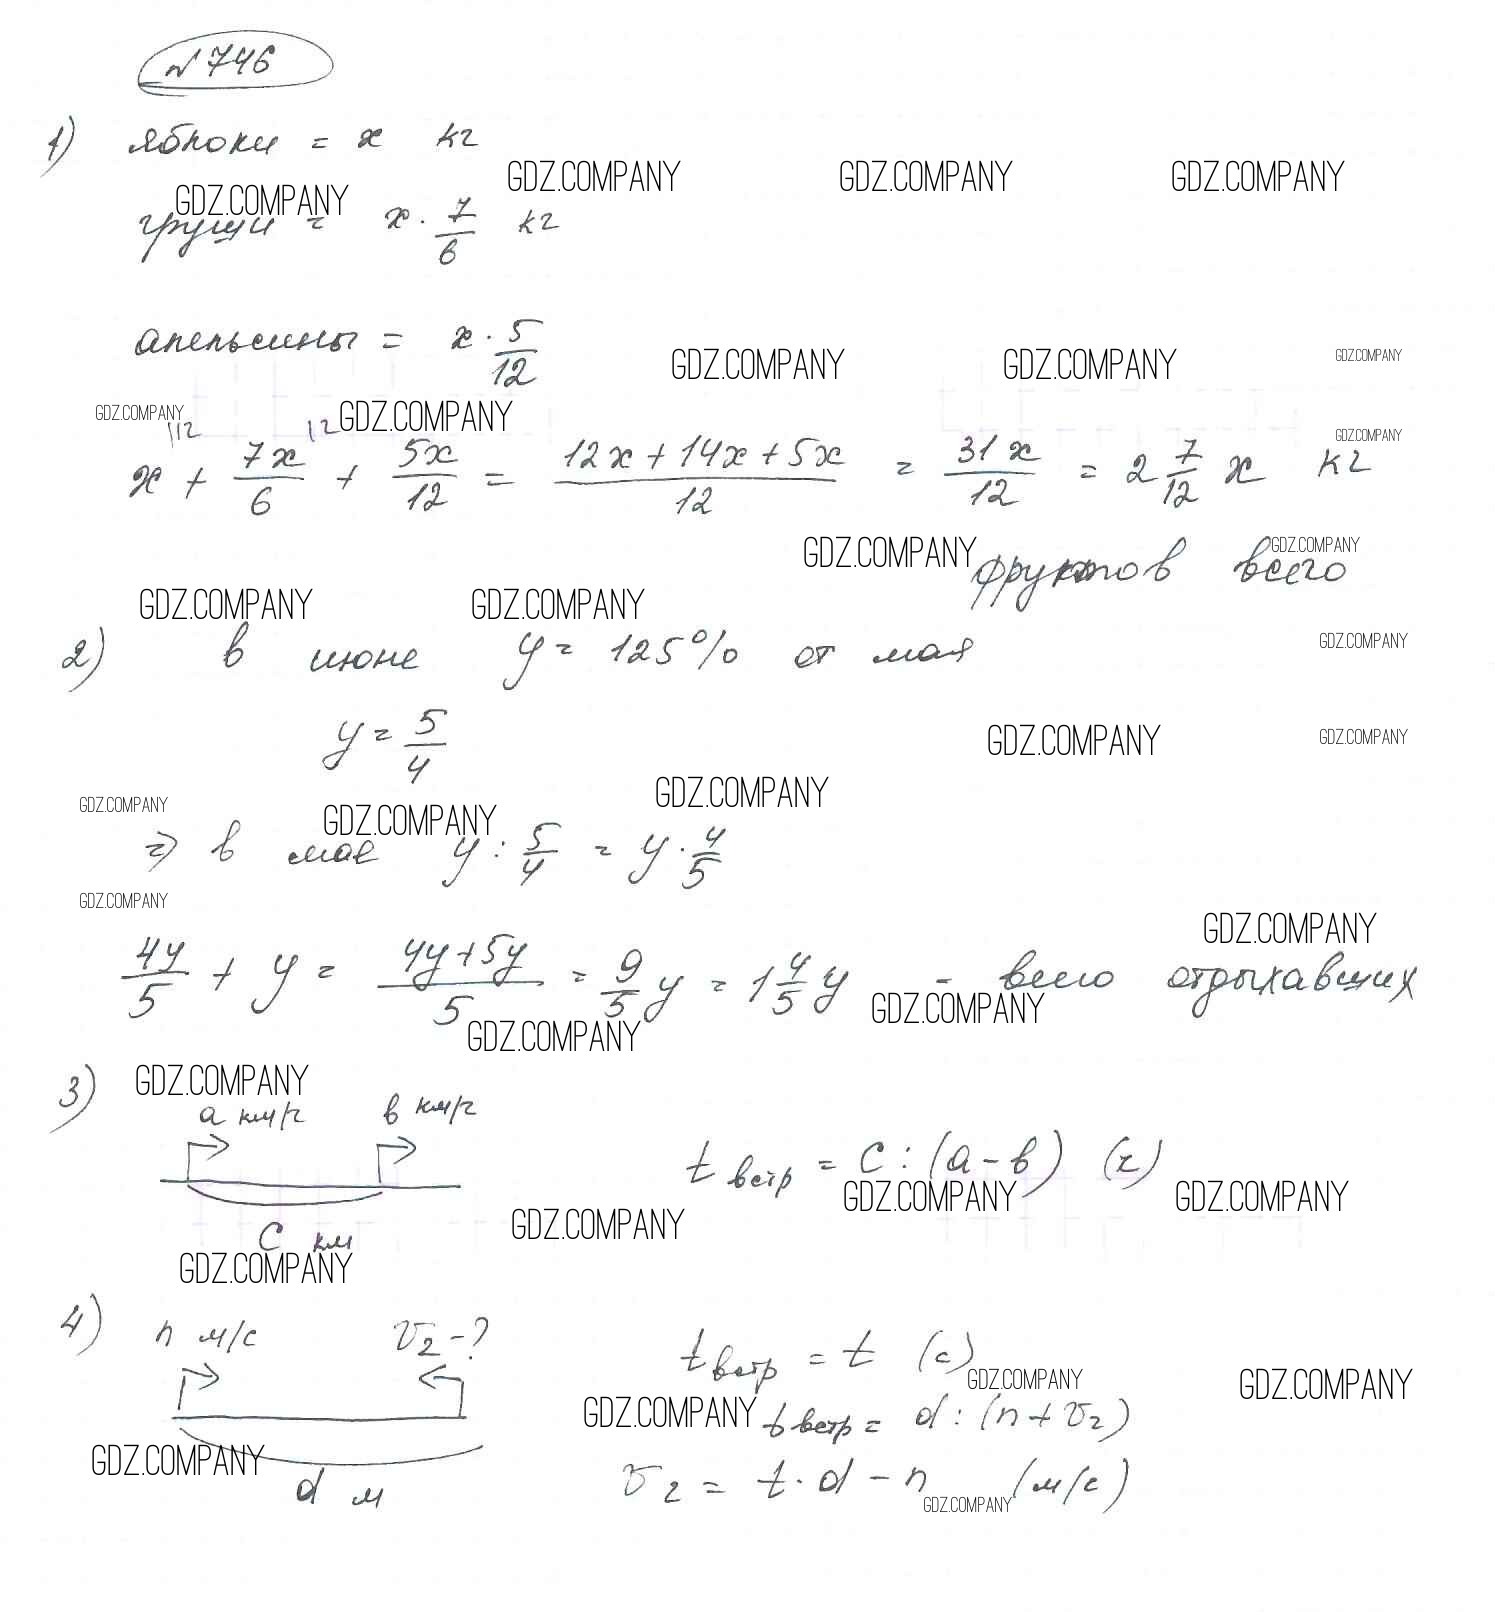 № 746
1) яблоки = x кг
GDZ.COMPANY GDZ.COMPANY GDZ.COMPANY
GDZ.COMPANY
груши = x · 7/6 кг
апельсины = x · 5/12
GDZ.COMPANY GDZ.COMPANY GDZ.COMPANY
GDZ.COMPANY GDZ.COMPANY
GDZ.COMPANY
x + 7x/6 + 5x/12 = (12x + 14x + 5x)/12 = 31x/12 = 2 7/12 x кг
GDZ.COMPANY GDZ.COMPANY
фруктов всего
GDZ.COMPANY GDZ.COMPANY
2) в июне y = 125% от мая
GDZ.COMPANY
y = 5/4
GDZ.COMPANY GDZ.COMPANY
GDZ.COMPANY GDZ.COMPANY GDZ.COMPANY
=> в мае y : 5/4 = y · 4/5
GDZ.COMPANY
GDZ.COMPANY
4y/5 + y = (4y + 5y)/5 = 9/5 y = 1 4/5 y - всего отдыхавших
GDZ.COMPANY GDZ.COMPANY
3) GDZ.COMPANY
a км/ч в км/ч
t встр = c : (a - в) (ч)
GDZ.COMPANY GDZ.COMPANY
GDZ.COMPANY
c км
GDZ.COMPANY
4) n м/с v2 - ?
t встр = t (с)
GDZ.COMPANY GDZ.COMPANY
GDZ.COMPANY t встр = d : (n + v2)
GDZ.COMPANY
d м
v2 = t · d - n (м/с)
GDZ.COMPANY